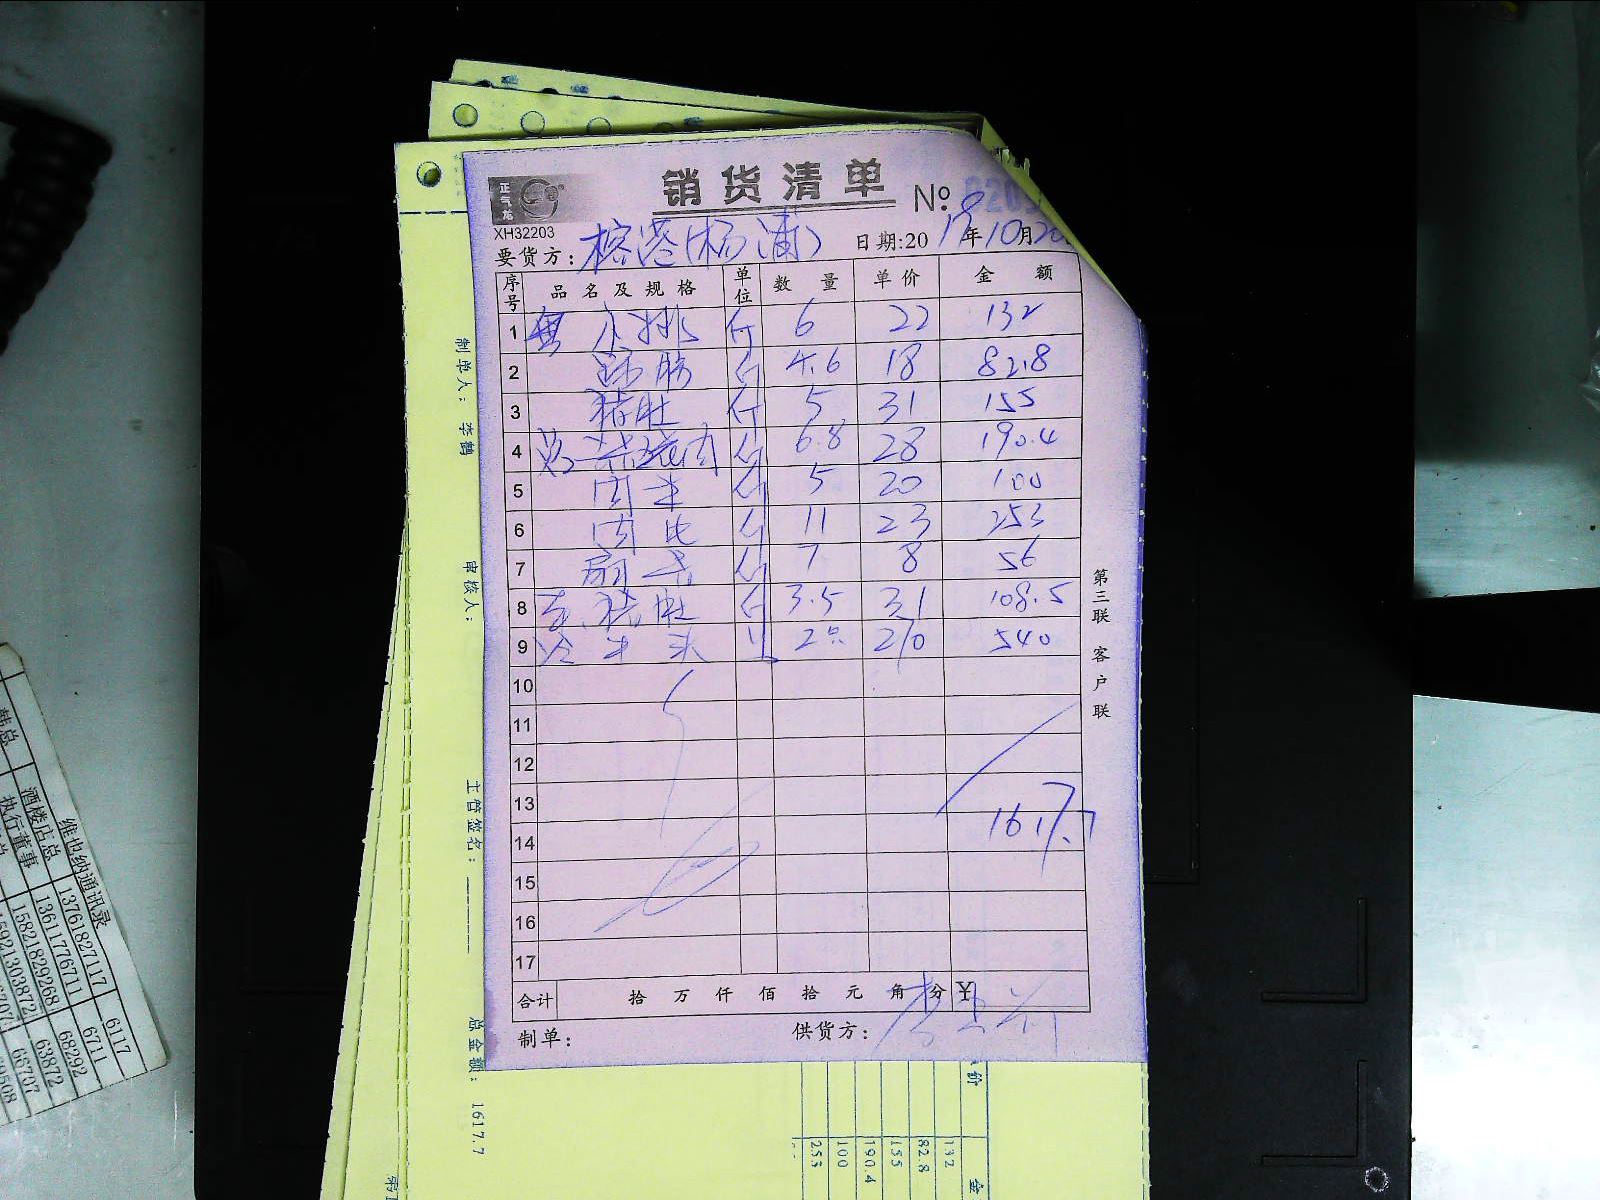 销货清单
正气龙
XH32203
№
要货方：榕港(杨浦)
日期:2019年10月20
序号 品名及规格 单位 数量 单价 金额
1 小排 斤 6 22 132
2 蹄膀 斤 4.6 18 82.8
3 猪肚 斤 5 31 155
4 斤 6.8 28 190.4
5 肉丝 斤 5 20 100
6 斤 11 23 253
7 扇骨 斤 7 8 56
8 猪肚 斤 3.5 31 108.5
9 2只 270 540
10
11
12
13
14 1617.7
15
16
17
合计 拾 万 仟 佰 拾 元 角 分 ¥
制单： 供货方：
第三联 客户联
制单人：李鹤
审核人：
主管签名：
总金额：1617.7
价
金
132
82.8
155
190.4
100
253
维也纳通讯录
韩总
酒楼店总
执行董事
13761827117 6117
13611776711 6711
15821829268 68292
15921303872 63872